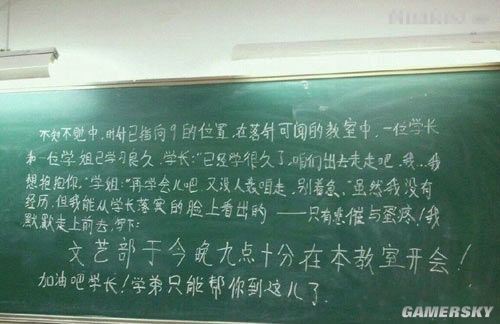 不知不觉中，时针已指向9的位置，在落针可闻的教室中，一位学长
和一位学姐已学习良久，学长：“已经学很久了，咱们出去走走吧，我…我
想抱抱你，”学姐：“再学会儿吧，又没人卷咱走，别着急，虽然我没有
经历，但我能从学长落寞的脸上看出的——只有悲催与蛋疼！我
默默走上前去，写下：
文艺部于今晚九点十分在本教室开会！
加油吧学长！学弟只能帮你到这儿了.
GAMERSKY